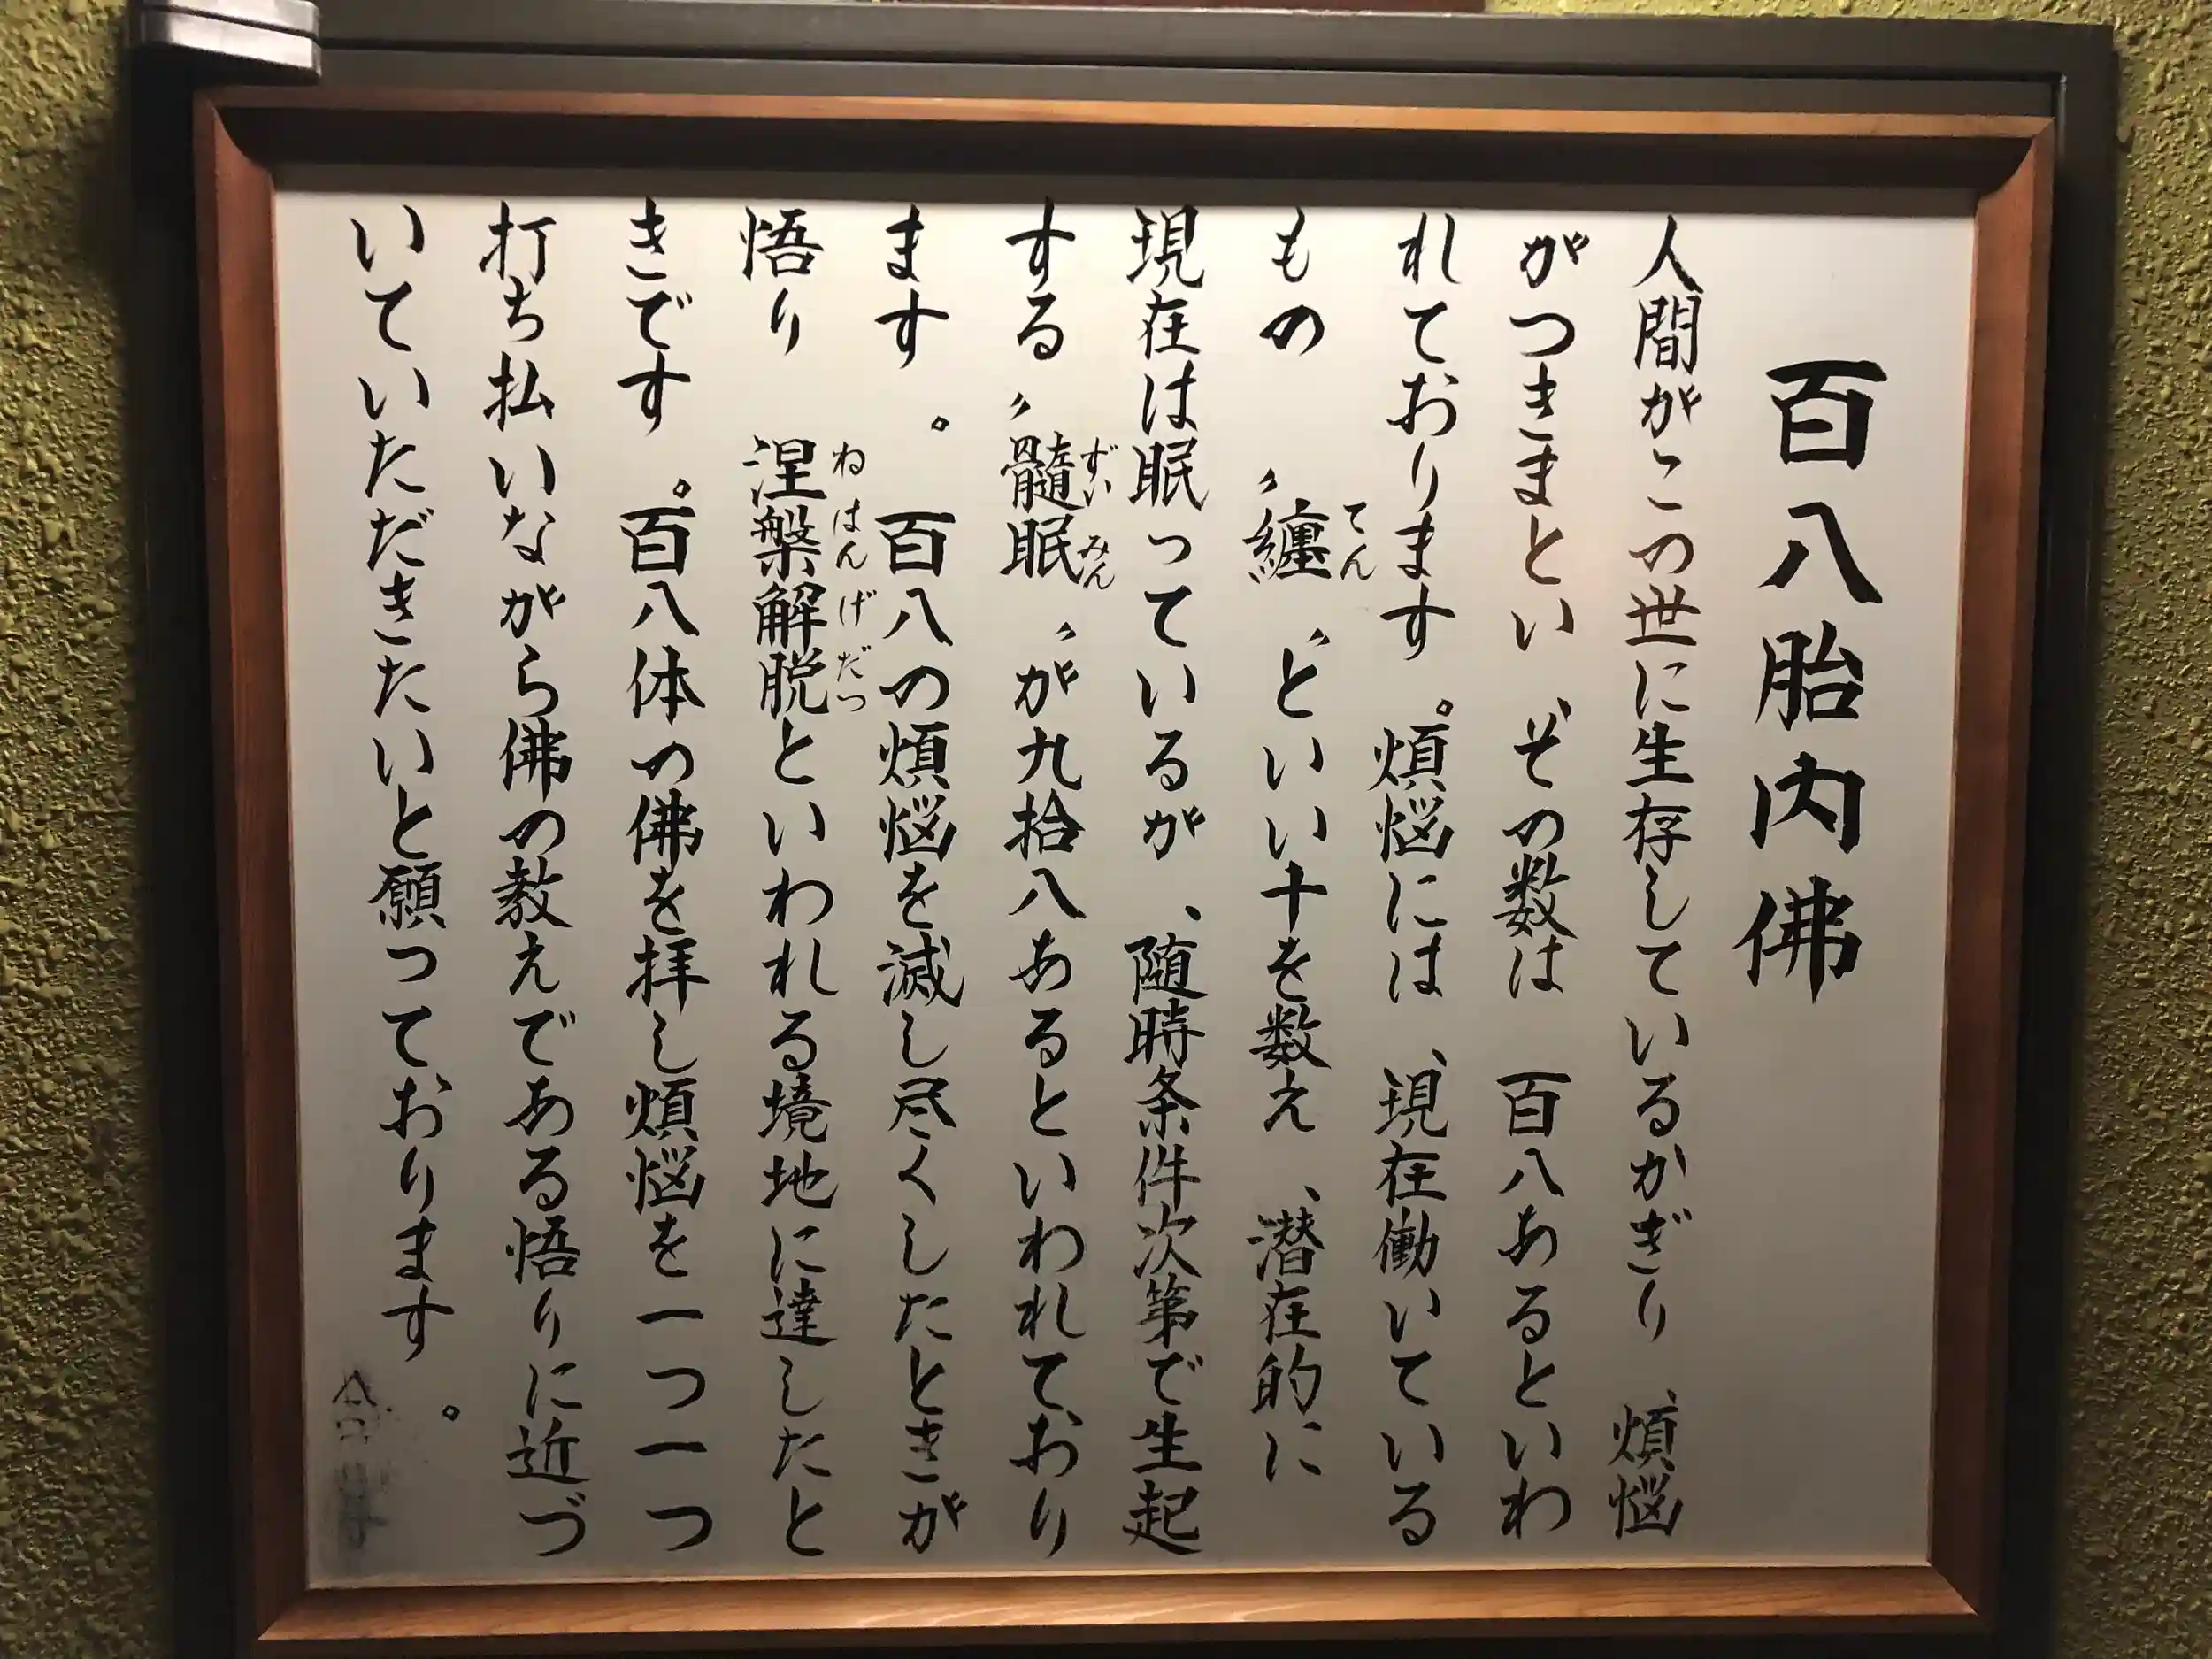 百八胎内佛
人間がこの世に生存しているかぎり、煩悩
がつきまとい、その数は百八あるといわ
れております。煩悩には、現在働いている
もの〃纏〃といい十を数え、潜在的に
てん
現在は眠っているが、随時条件次第で生起
する〃髄眠〃が九拾八あるといわれており
ずいみん
ます。百八の煩悩を滅し尽くしたときが
悟り 涅槃解脱といわれる境地に達したと
ねはんげだつ
きです。百八体の佛を拝し煩悩を一つ一つ
打ち払いながら佛の教えである悟りに近づ
いていただきたいと願っております。